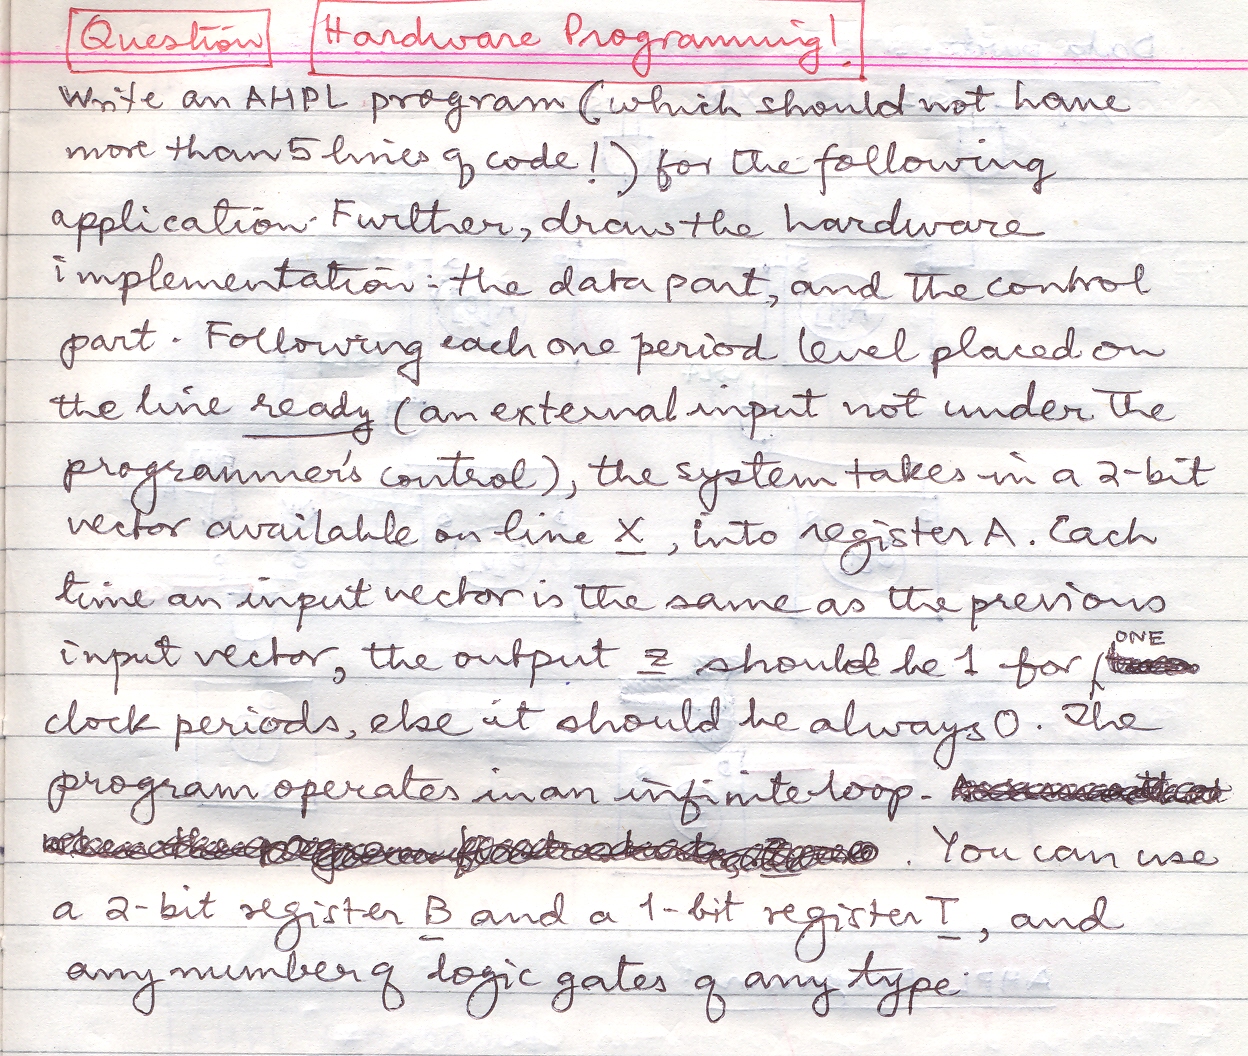 Question Hardware Programming!
Write an AHPL program (which should not have
more than 5 lines of code!) for the following
application. Further, draw the hardware
implementation: the data part, and the control
part. Following each one period level placed on
the line ready (an external input not under the
programmer's control), the system takes in a 2-bit
vector available on line X, into register A. Each
time an input vector is the same as the previous
input vector, the output z should be 1 for ONE
clock periods, else it should be always 0. The
program operates in an infinite loop.
. You can use
a 2-bit register B and a 1-bit register I, and
any number of logic gates of any type.